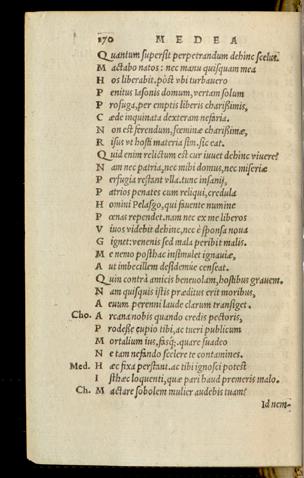 170 MEDEA
Quantum supersit perpetrandum dehinc scelus.
Mactabo natos: nec manu quisquam mea
Hos liberabit. pòst vbi turbauero
Penitus Iasonis domum, vertam solum
Profuga, per emptis liberis charißimis,
Cæde inquinata dexteram nefaria.
Non est ferendum, fœminæ charißimæ,
Risus vt hosti materia sim. sic eat.
Quid enim relictum est cur iuuet dehinc viuere?
Nam nec patria, nec mihi domus, nec miseriæ
Perfugia restant vlla. tunc insanij,
Patrios penates cum reliqui, credula
Homini Pelasgo, qui fauente numine
Pœnas rependet. nam nec ex me liberos
Viuos videbit dehinc, nec è sponsa noua
Gignet: venenis sed mala peribit malis.
Me nemo posthac instimulet ignauiæ,
Aut imbecillem desidemúe censeat.
Quin contrà amicis beneuolam, hostibus grauem.
Nam quisquis istis præditus erit moribus,
Aeuum perenni laude clarum transiget.
Cho. Arcana nobis quando credis pectoris,
Prodeße cupio tibi, ac tueri publicum
Mortalium ius, fasq́;. quare suadeo
Ne tam nefando scelere te contamines.
Med. Hæc fixa perstant. ac tibi ignosci potest
Isthæc loquenti, quæ pari haud premeris malo.
Ch. Mactare sobolem mulier audebis tuam?
Id nem-